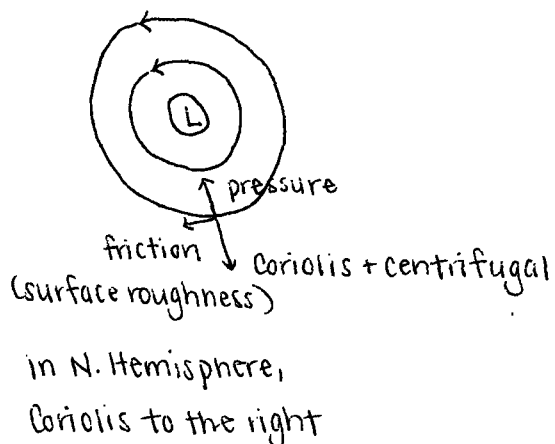 L
pressure
friction
(surface roughness)
Coriolis + centrifugal
in N. Hemisphere,
Coriolis to the right